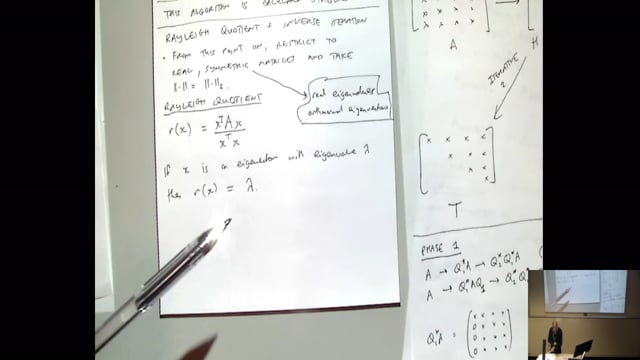 THIS ALGORITHM IS BACKWARD STABLE
RAYLEIGH QUOTIENT & INVERSE ITERATION
• FROM THIS POINT ON, RESTRICT TO
REAL, SYMMETRIC MATRICES AND TAKE
||·|| = ||·||₂
real eigenvalues
orthonormal eigenvectors
RAYLEIGH QUOTIENT
r(x) = xᵀAx / xᵀx
If x is an eigenvector with eigenvalue λ
then r(x) = λ.
A
H
ITERATIVE
2
x x x x
x x x
x x
x
T
PHASE 1
A → Q₁*A → Q₂*Q₁*A
A → Q₁*AQ₁ → Q₂*Q₁*
Q₁*A =
x x x x
0 x x x
0 x x x
0 x x x